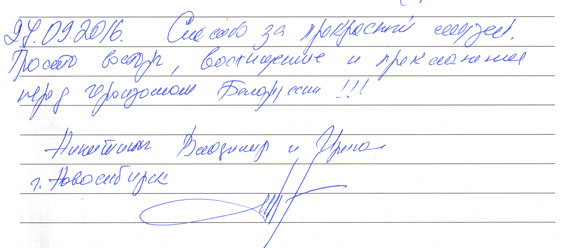 27.09.2016. Спасибо за прекрасный музей.
Просто восторг, восхищение и преклонение
перед героизмом Белоруссии !!!
Никитины Владимир и Ирина
г. Новосибирск